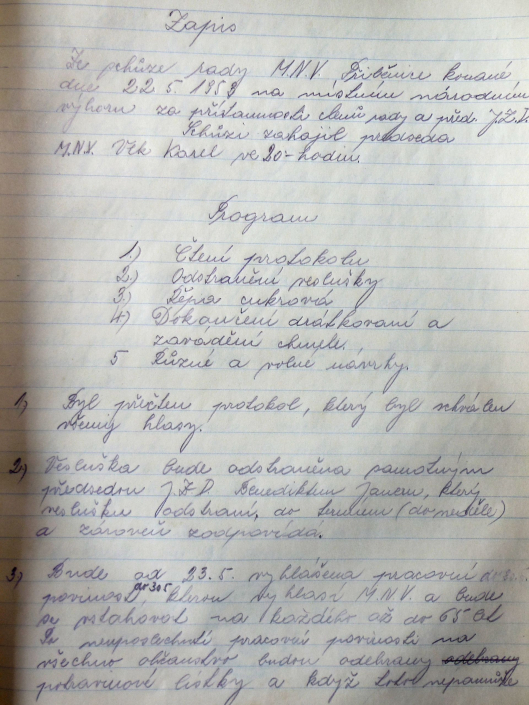 Zapis
Ze schůze rady M.N.V. Přiběnice konané
dne 22.5. 1953 na místním národním
výboru za přítomnosti členů rady a před. J.Z.D.
Schůzi zahájil předseda
M.N.V. Vlk Karel ve 20-hodin.
Program
1.) Čtení protokolu
2.) Odstranění veslušky
3.) Řepa cukrová
4.) Dokončení drátkovaní a
zavádění chmele.
5 Různé a volné návrhy.
1.) Byl přečten protokol, který byl schválen
všemi hlasy.
2.) Vesluška bude odstraněna samotným
předsedou J.Z.D. Benediktem Janem, který
veslušku odstraní, do termínu (do neděle)
a zároveň zodpovídá.
3.) Bude od 23.5. vyhlášena pracovní
povinost, do 30.5. kterou vyhlásí M.N.V. a bude
se vztahovat na každého až do 65 let
Po neuposlechnutí pracovní povinosti na
všechno občanstvo budou odebrany odebrany
potravinové lístky a když toto nepomůže